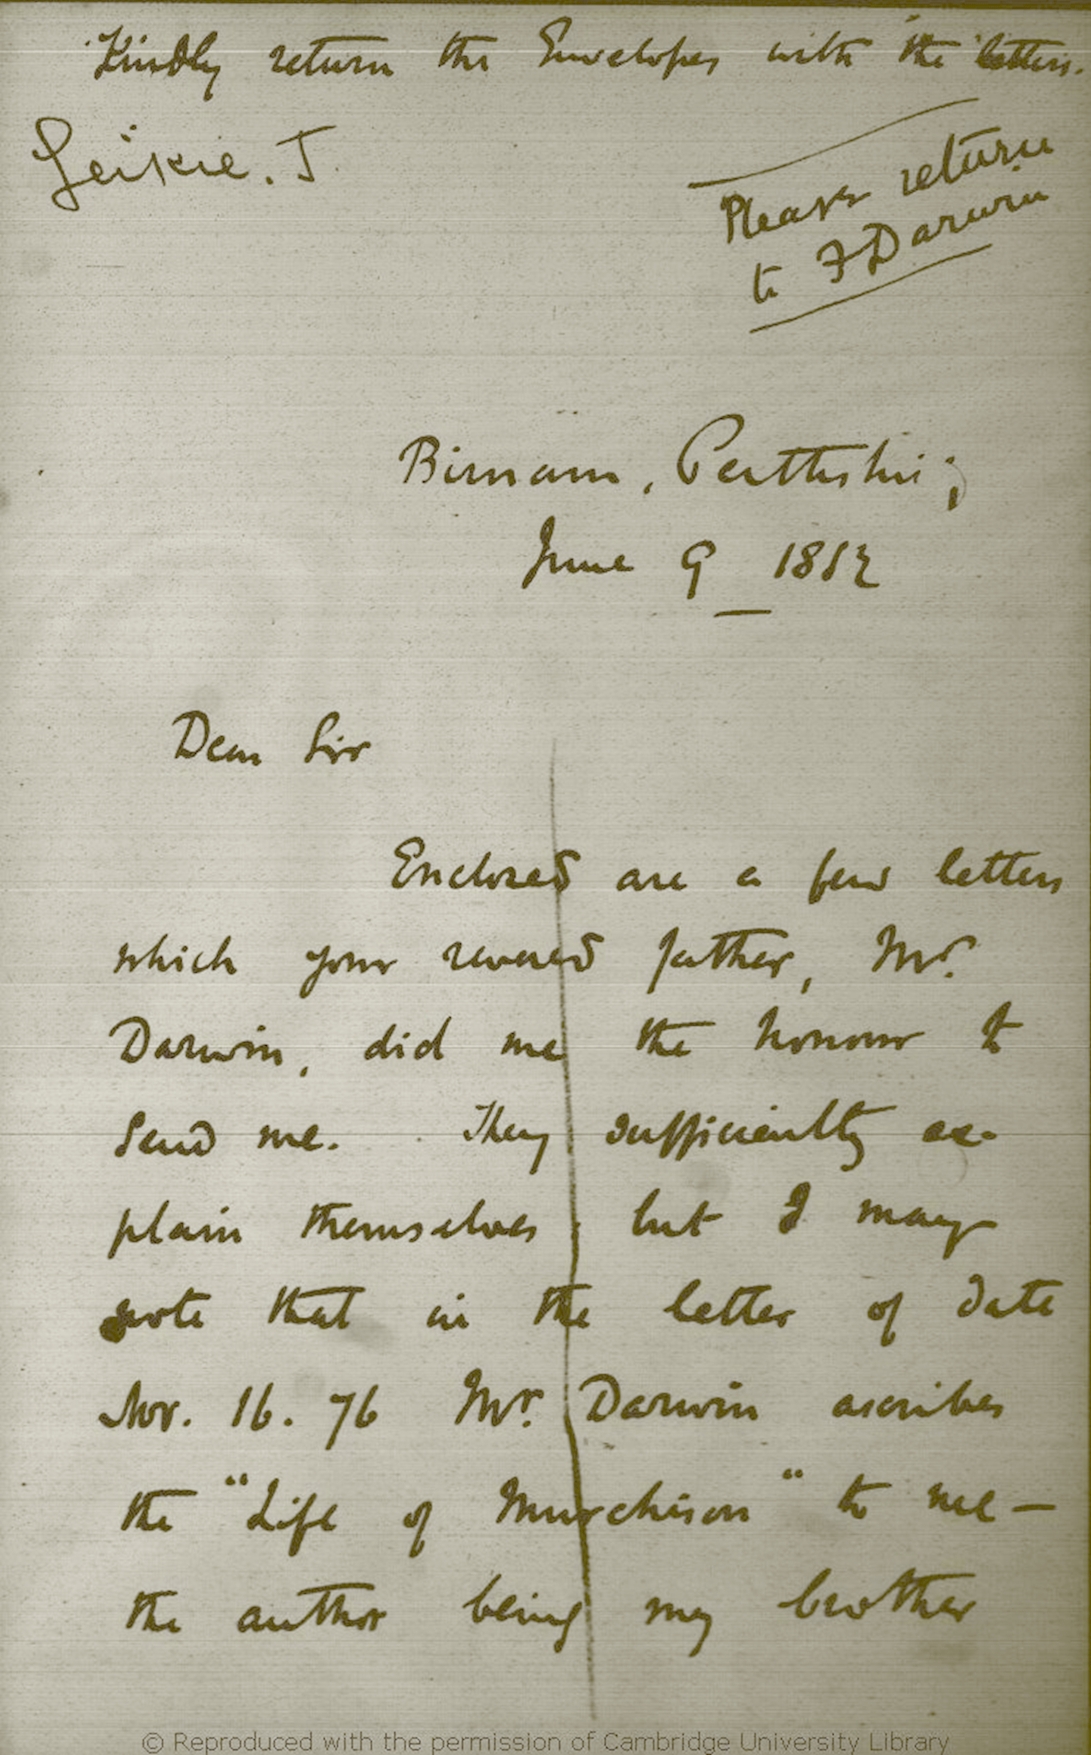 Kindly return the Envelopes with the letters.
Geikie. J.
Please return
to F Darwin
Birnam, Perthshire;
June 9 1882
Dear Sir
Enclosed are a few letters
which your revered father, Mr.
Darwin, did me the honour to
send me. They sufficiently ex-
plain themselves; but I may
note that in the letter of date
Nov. 16. 76 Mr. Darwin ascribes
the "Life of Murchison" to me —
the author being my brother
© Reproduced with the permission of Cambridge University Library